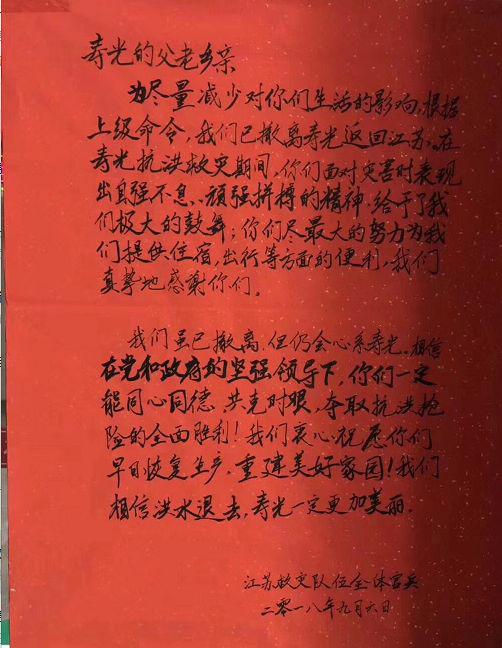 寿光的父老乡亲
为尽量减少对你们生活的影响,根据
上级命令,我们已撤离寿光返回江苏。在
寿光抗洪救灾期间,你们面对灾害时表现
出自强不息、顽强拼搏的精神,给于了我
们极大的鼓舞;你们尽最大的努力为我
们提供住宿,出行等方面的便利,我们
真挚地感谢你们。
我们虽已撤离,但仍会心系寿光。相信
在党和政府的坚强领导下,你们一定
能同心同德,共克时艰,夺取抗洪抢
险的全面胜利!我们衷心祝愿你们
早日恢复生产,重建美好家园!我们
相信洪水退去,寿光一定更加美丽.
江苏救灾队伍全体官兵
二零一八年九月六日